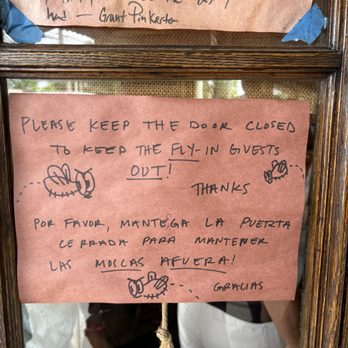 had — Grant Pinkerton
PLEASE KEEP THE DOOR CLOSED
TO KEEP THE FLY-IN GUESTS
OUT!
THANKS
POR FAVOR, MANTÉGA LA PUERTA
CERRADA PARA MANTENER
LAS MOSCAS AFUERA!
GRACIAS